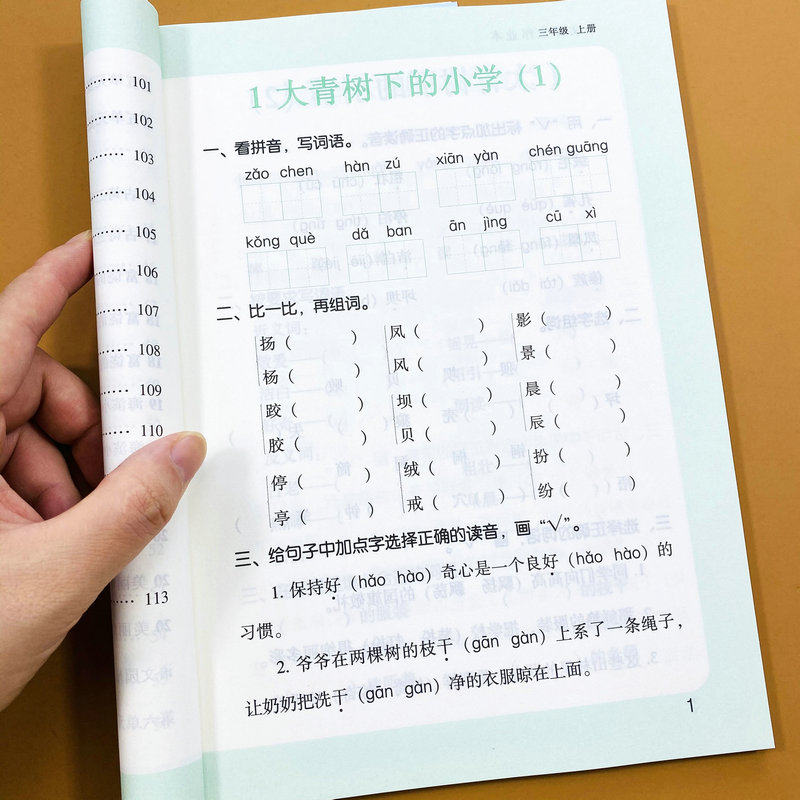 三年级 上册
1 大青树下的小学（1）
一、看拼音，写词语。
zǎo chen hàn zú xiān yàn chén guāng
kǒng què dǎ ban ān jìng cū xì
二、比一比，再组词。
扬（ ） 凤（ ） 影（ ）
杨（ ） 风（ ） 景（ ）
跤（ ） 坝（ ） 晨（ ）
胶（ ） 贝（ ） 辰（ ）
停（ ） 绒（ ） 扮（ ）
亭（ ） 戒（ ） 纷（ ）
三、给句子中加点字选择正确的读音，画“√”。
1. 保持好（hǎo hào）奇心是一个良好（hǎo hào）的
习惯。
2. 爷爷在两棵树的枝干（gān gàn）上系了一条绳子，
让奶奶把洗干（gān gàn）净的衣服晾在上面。
1
101
102
103
104
105
106
107
108
109
110
113